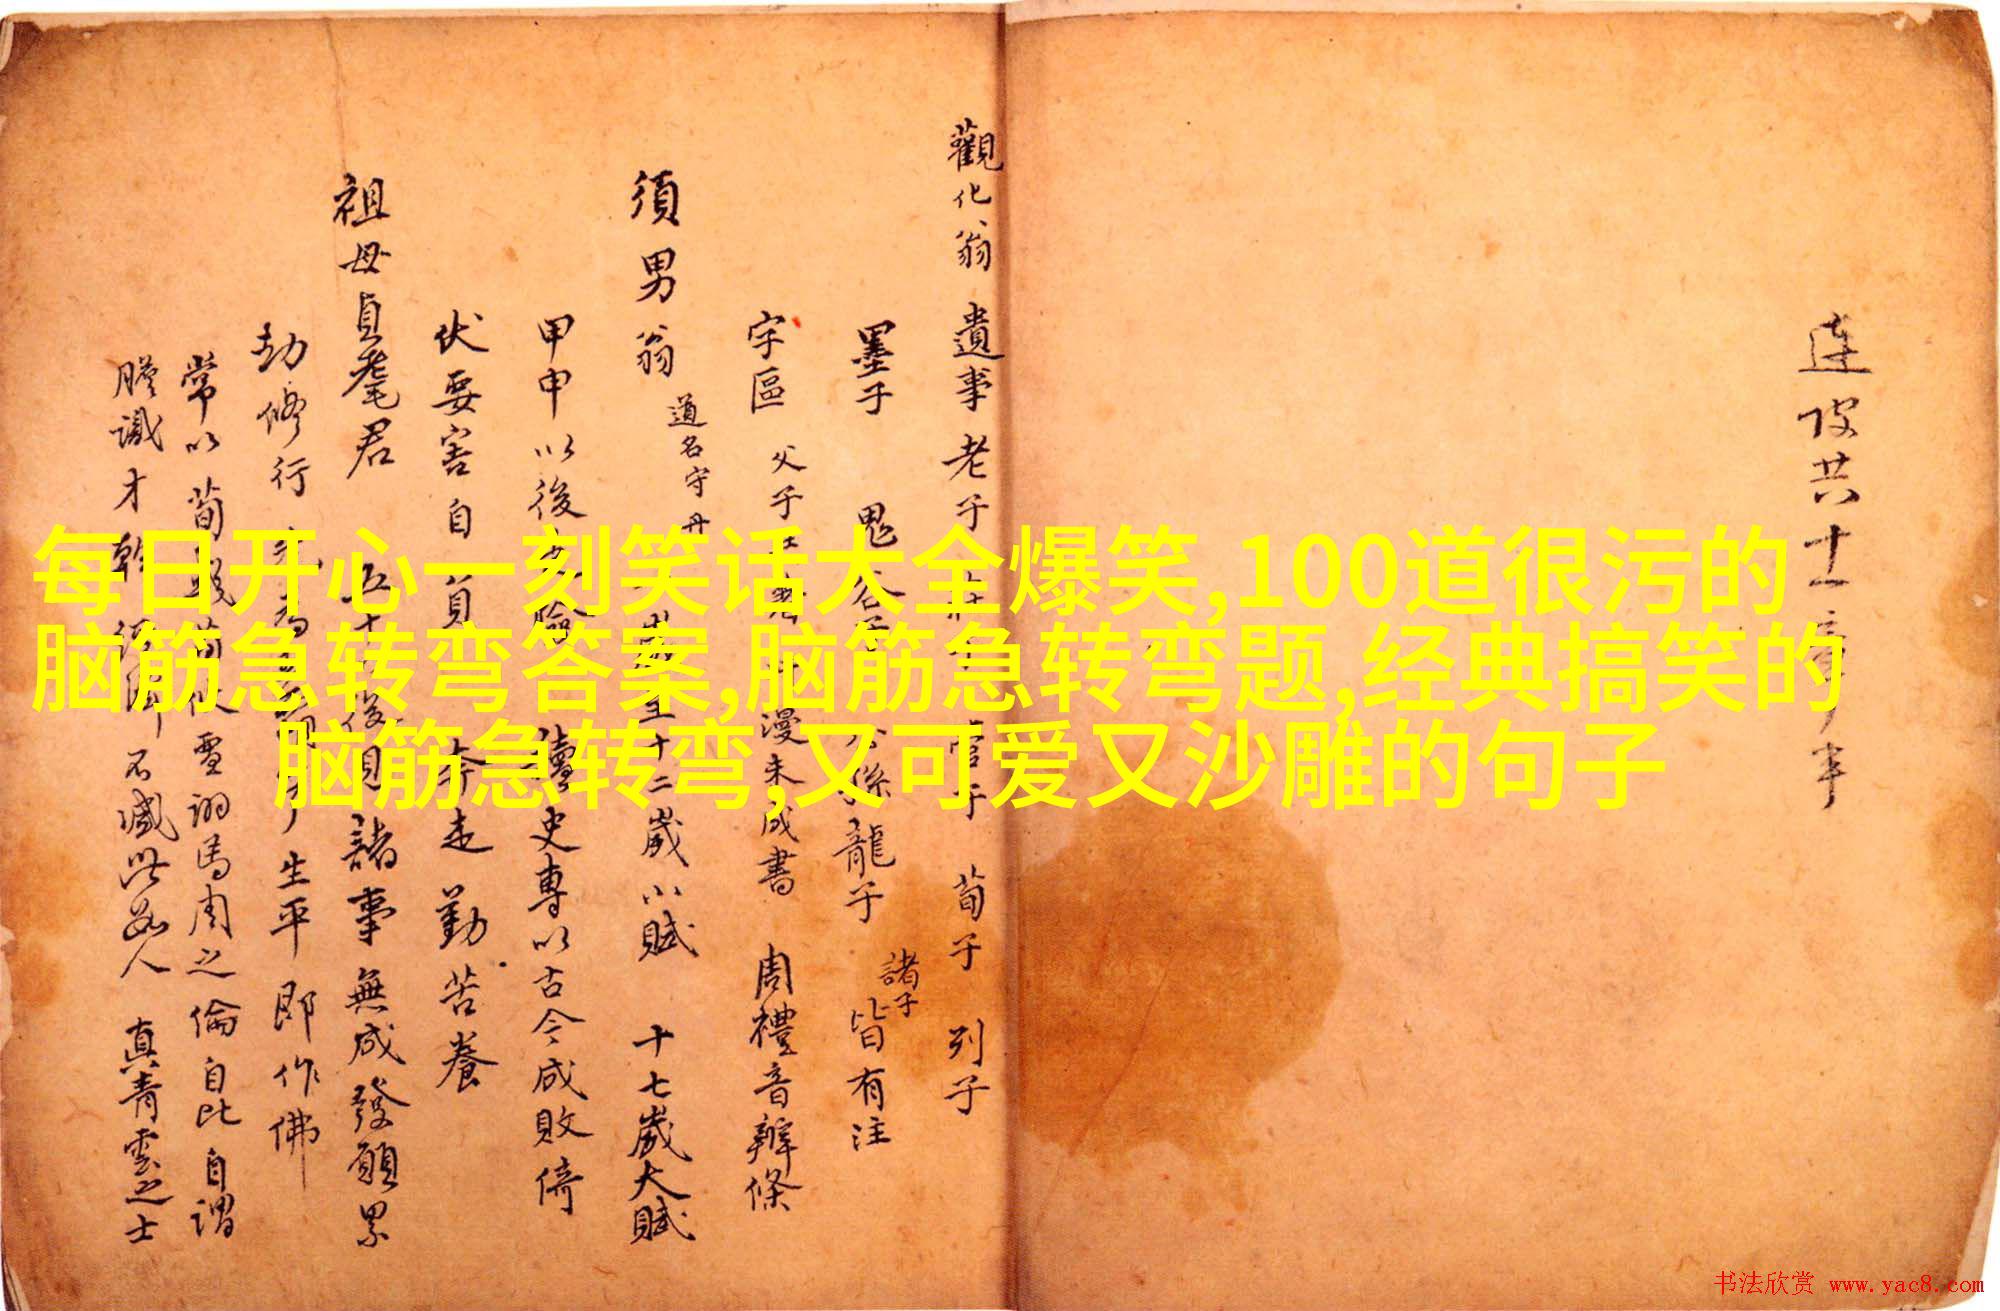 連皮共十一章半
觀化翁 遺事 老子 莊子 管子 荀子 列子
墨子 鬼谷子 公孫龍子 諸子 皆有注
字區 父子 漫未成書 周禮音辨條
須男翁 道名守丹 十二歲小賦 十七歲大賦
甲申以後 史專以古今成敗倚
伏要害自負 奔走勤苦養
祖母貞髦君 五十 後見諸事無成發願累
劫修行 生平即作佛
常以荀 馬周之倫自比自謂
膽識才幹 不減此品人 真青雲之士
每日开心一刻笑话大全爆笑,100道很污的
脑筋急转弯答案,脑筋急转弯题,经典搞笑的
脑筋急转弯,又可爱又沙雕的句子
书法欣赏 www.yac8.com